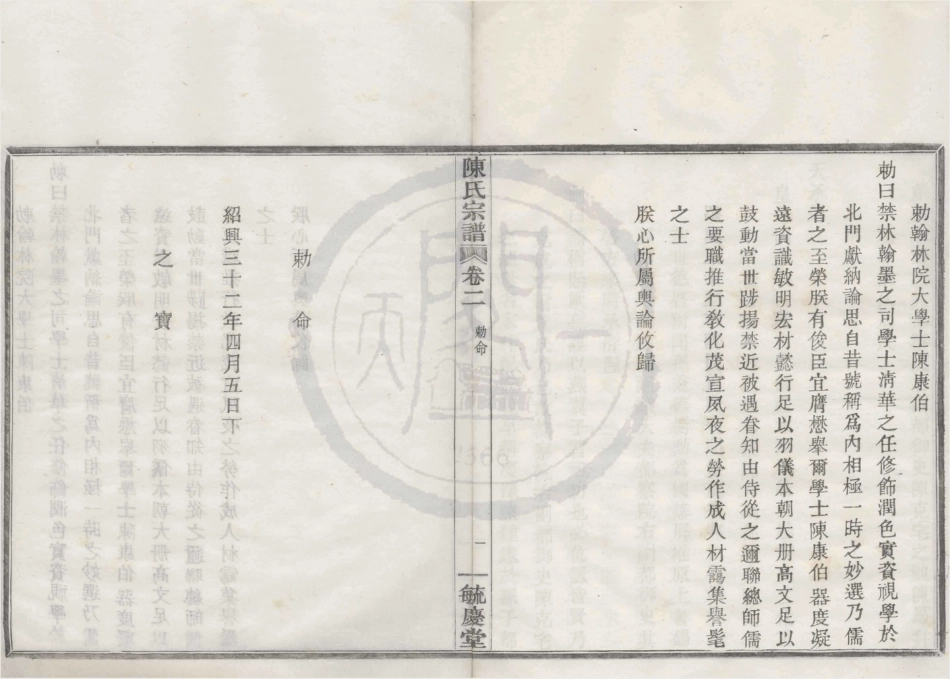 勅翰林院大學士陳康伯
勅曰禁林翰墨之司學士淸華之任修飾潤色實資視學於
北門獻納論思自昔號稱爲內相極一時之妙選乃儒
者之至榮朕有俊臣宜膺懋舉爾學士陳康伯器度凝
遠資識敏明宏材懿行足以羽儀本朝大册高文足以
鼓動當世踄揚禁近被遇眷知由侍從之邇聯總師儒
之要職推行敎化茂宣夙夜之勞作成人材靄集譽髦
之士
朕心所屬輿論攸歸
陳氏宗譜
卷二
勅命
一
毓慶堂
勅命
紹興三十二年四月五日下
之寶